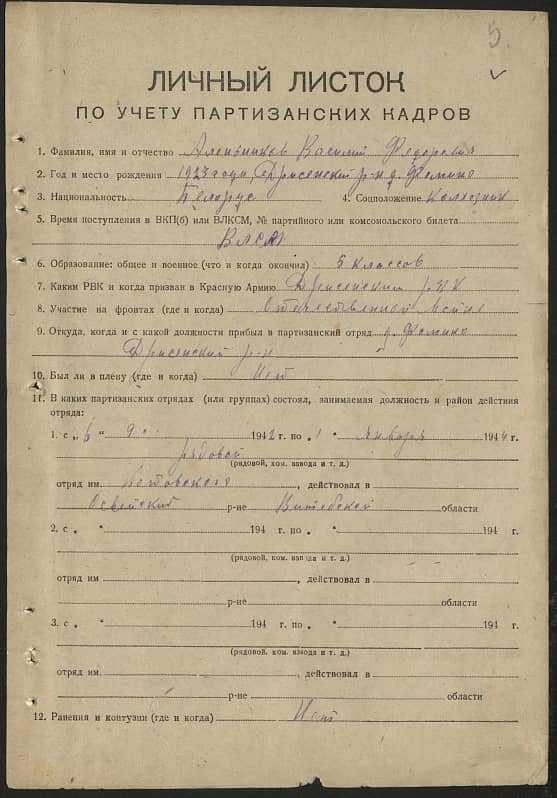 5.
ЛИЧНЫЙ ЛИСТОК
ПО УЧЕТУ ПАРТИЗАНСКИХ КАДРОВ
1. Фамилия, имя и отчество Василий Федорович
2. Год и место рождения 1923 года, Дрисенский р-н д. Фомино
3. Национальность Белорус 4. Соцположение Колхозник
5. Время поступления в ВКП(б) или ВЛКСМ, № партийного или комсомольского билета
ВЛКСМ
6. Образование: общее и военное (что и когда окончил) 5 классов
7. Каким РВК и когда призван в Красную Армию Дрисенским
8. Участие на фронтах (где и когда) Отечественной войне
9. Откуда, когда и с какой должности прибыл в партизанский отряд д. Фомино
Дрисенский р-н
10. Был ли в плену (где и когда) Нет
11. В каких партизанских отрядах (или группах) состоял, занимаемая должность и район действия
отряда:
1. с „ 6 " 9 1942 г. по „ 1 " января 1944 г.
рядовой
(рядовой, ком. взвода и т. д.)
отряд им. Котовского, действовал в
Освейский р-не Витебской области
2. с „ " 194 г. по „ " 194 г.
(рядовой, ком. взвода и т. д.)
отряд им , действовал в
р-не области
3. с „ " 194 г. по „ " 194 г.
(рядовой, ком. взвода и т. д.)
отряд им. , действовал в
р-не области
12. Ранения и контузии (где и когда) Нет